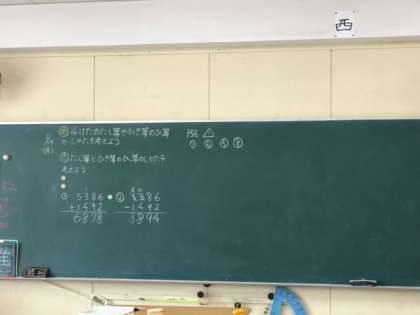 西
4けたのたし算やひき算のひっ算
のしかたを考えよう
P56 △
① ② ⑤ ⑧
たし算とひき算のひっ算のしかたを
考えよう
① 5386
+1492
6878
② 5386
-1492
3894